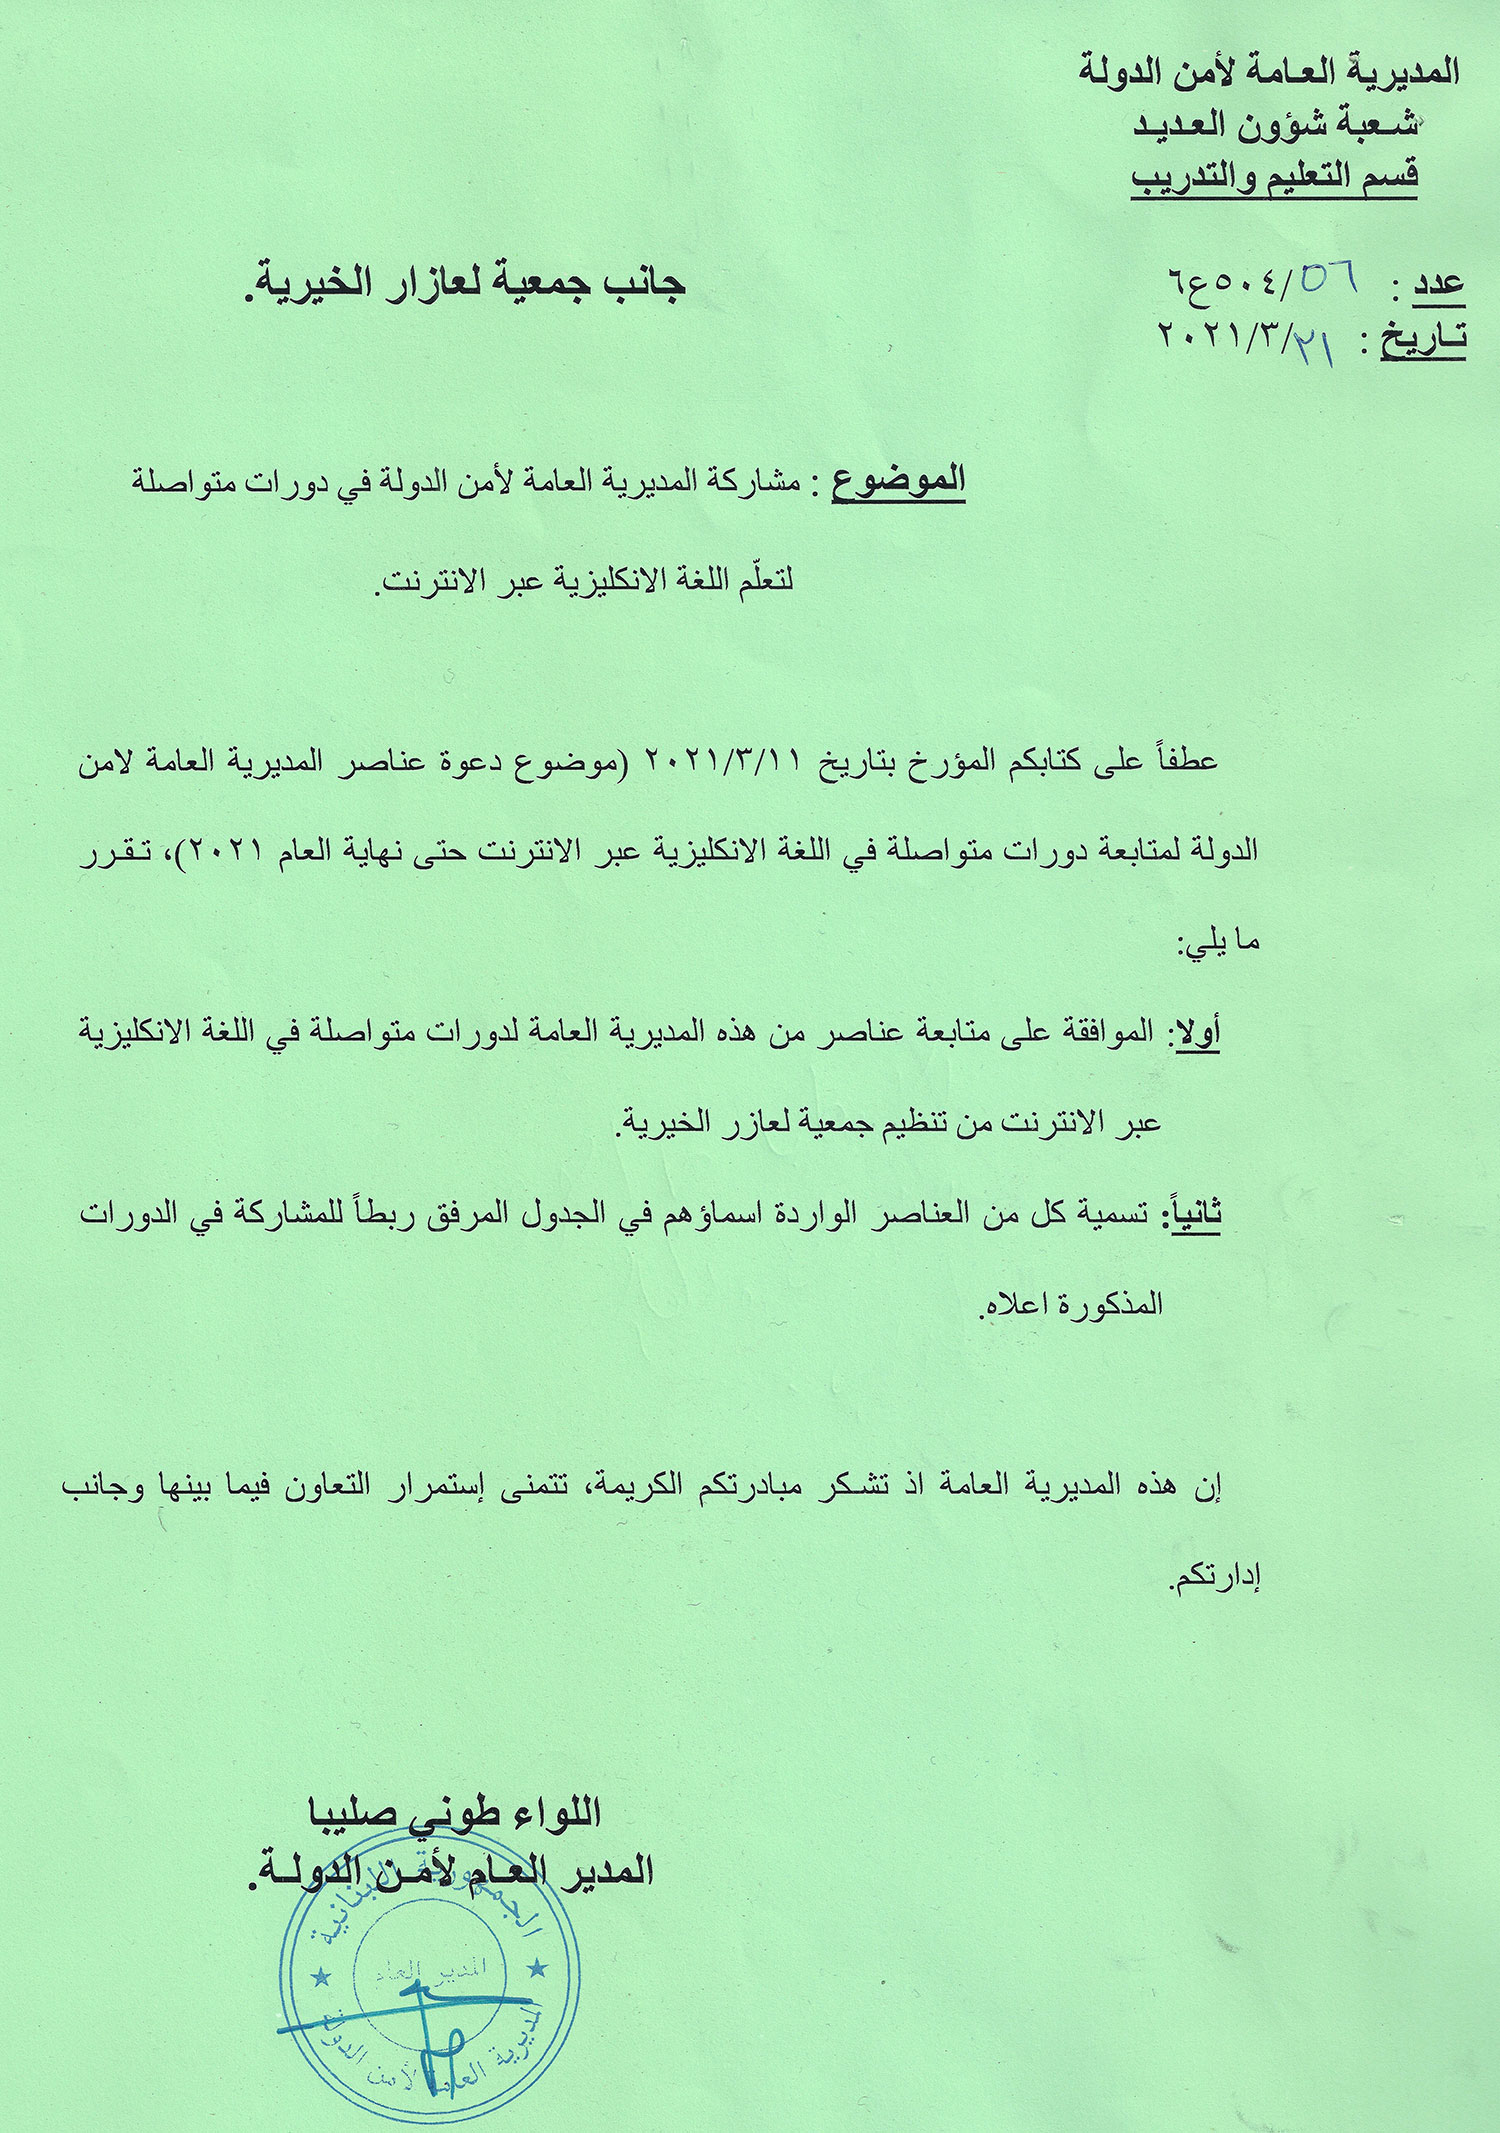 المديرية العامة لأمن الدولة
شعبة شؤون العديد
قسم التعليم والتدريب
عدد : ٥٦/٥٠٤ع٦
تاريخ : ٢١/٣/٢٠٢١
جانب جمعية لعازار الخيرية.
الموضوع : مشاركة المديرية العامة لأمن الدولة في دورات متواصلة
لتعلّم اللغة الانكليزية عبر الانترنت.
عطفاً على كتابكم المؤرخ بتاريخ ٢٠٢١/٣/١١ (موضوع دعوة عناصر المديرية العامة لامن
الدولة لمتابعة دورات متواصلة في اللغة الانكليزية عبر الانترنت حتى نهاية العام ٢٠٢١)، تقرر
ما يلي:
أولا: الموافقة على متابعة عناصر من هذه المديرية العامة لدورات متواصلة في اللغة الانكليزية
عبر الانترنت من تنظيم جمعية لعازر الخيرية.
ثانياً: تسمية كل من العناصر الواردة اسماؤهم في الجدول المرفق ربطاً للمشاركة في الدورات
المذكورة اعلاه.
إن هذه المديرية العامة اذ تشكر مبادرتكم الكريمة، تتمنى إستمرار التعاون فيما بينها وجانب
إدارتكم.
اللواء طوني صليبا
المدير العام لأمن الدولة.
الجمهورية اللبنانية
المدير العام
المديرية العامة لأمن الدولة